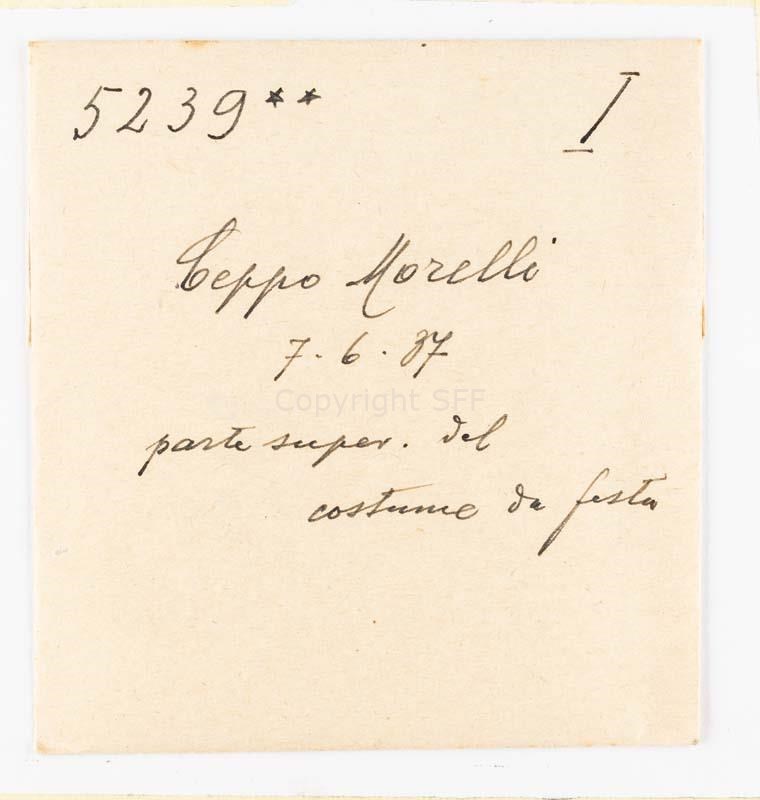 5239** I
Ceppo Morelli
7.6.37
Copyright SFF
parte super. del
costume da festa